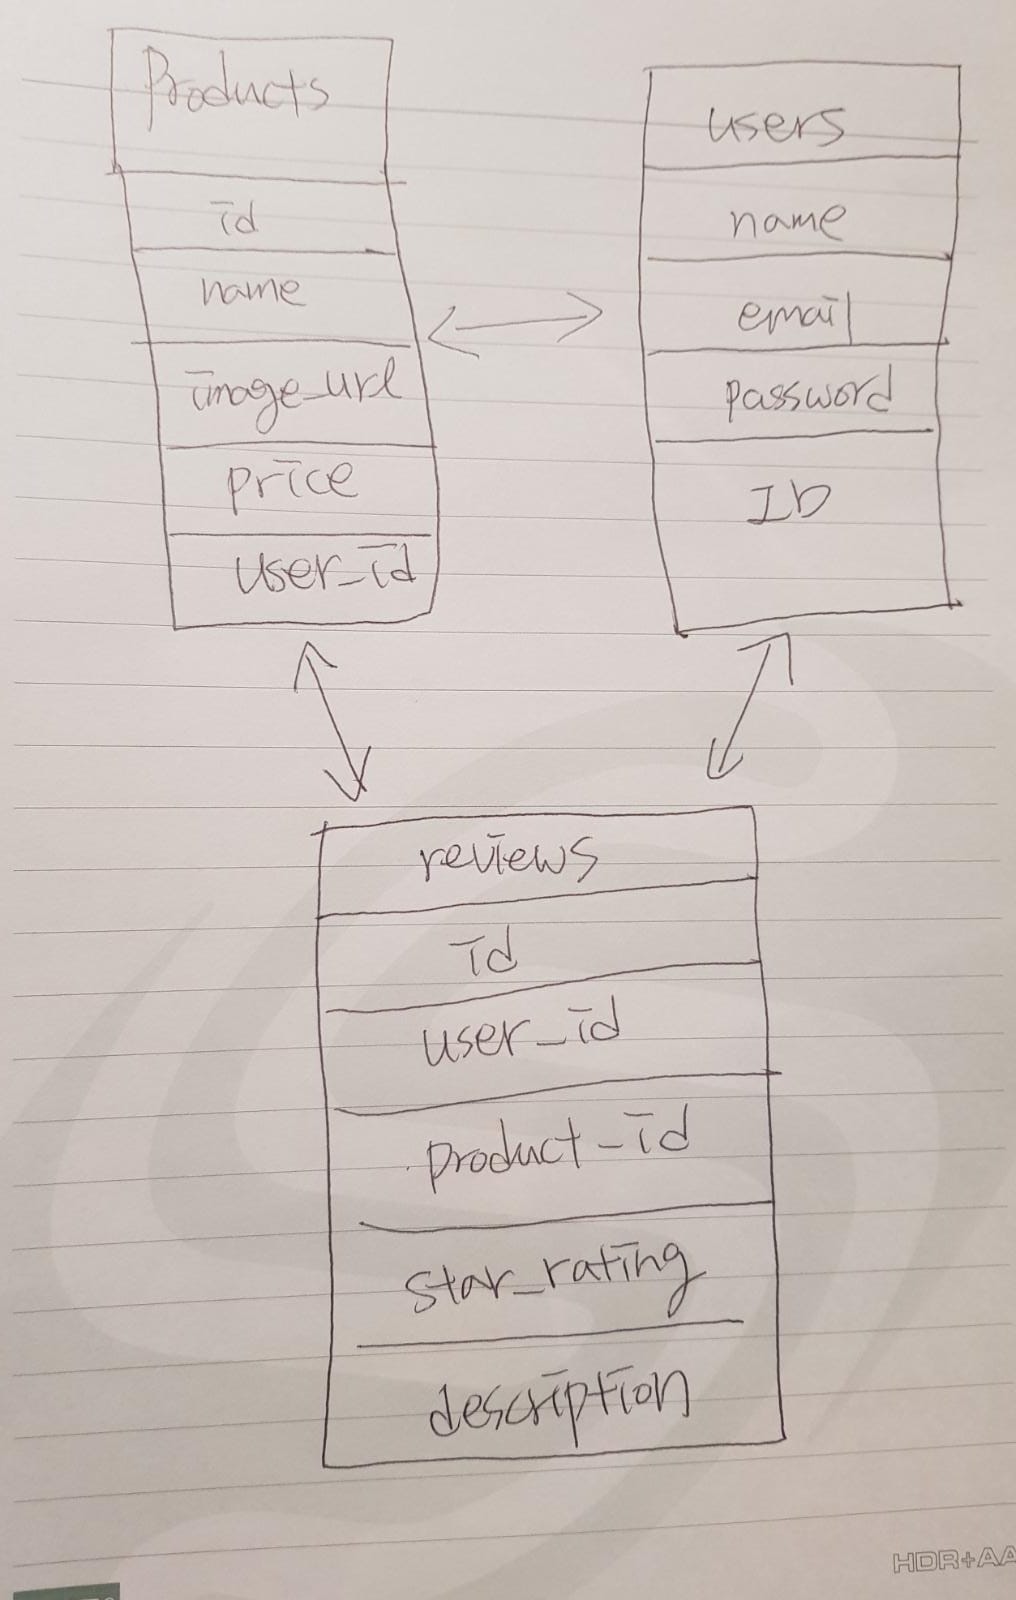 Products
id
name
image_url
price
user_id
users
name
email
password
ID
reviews
id
user_id
product-id
star_rating
description
HDR+AA